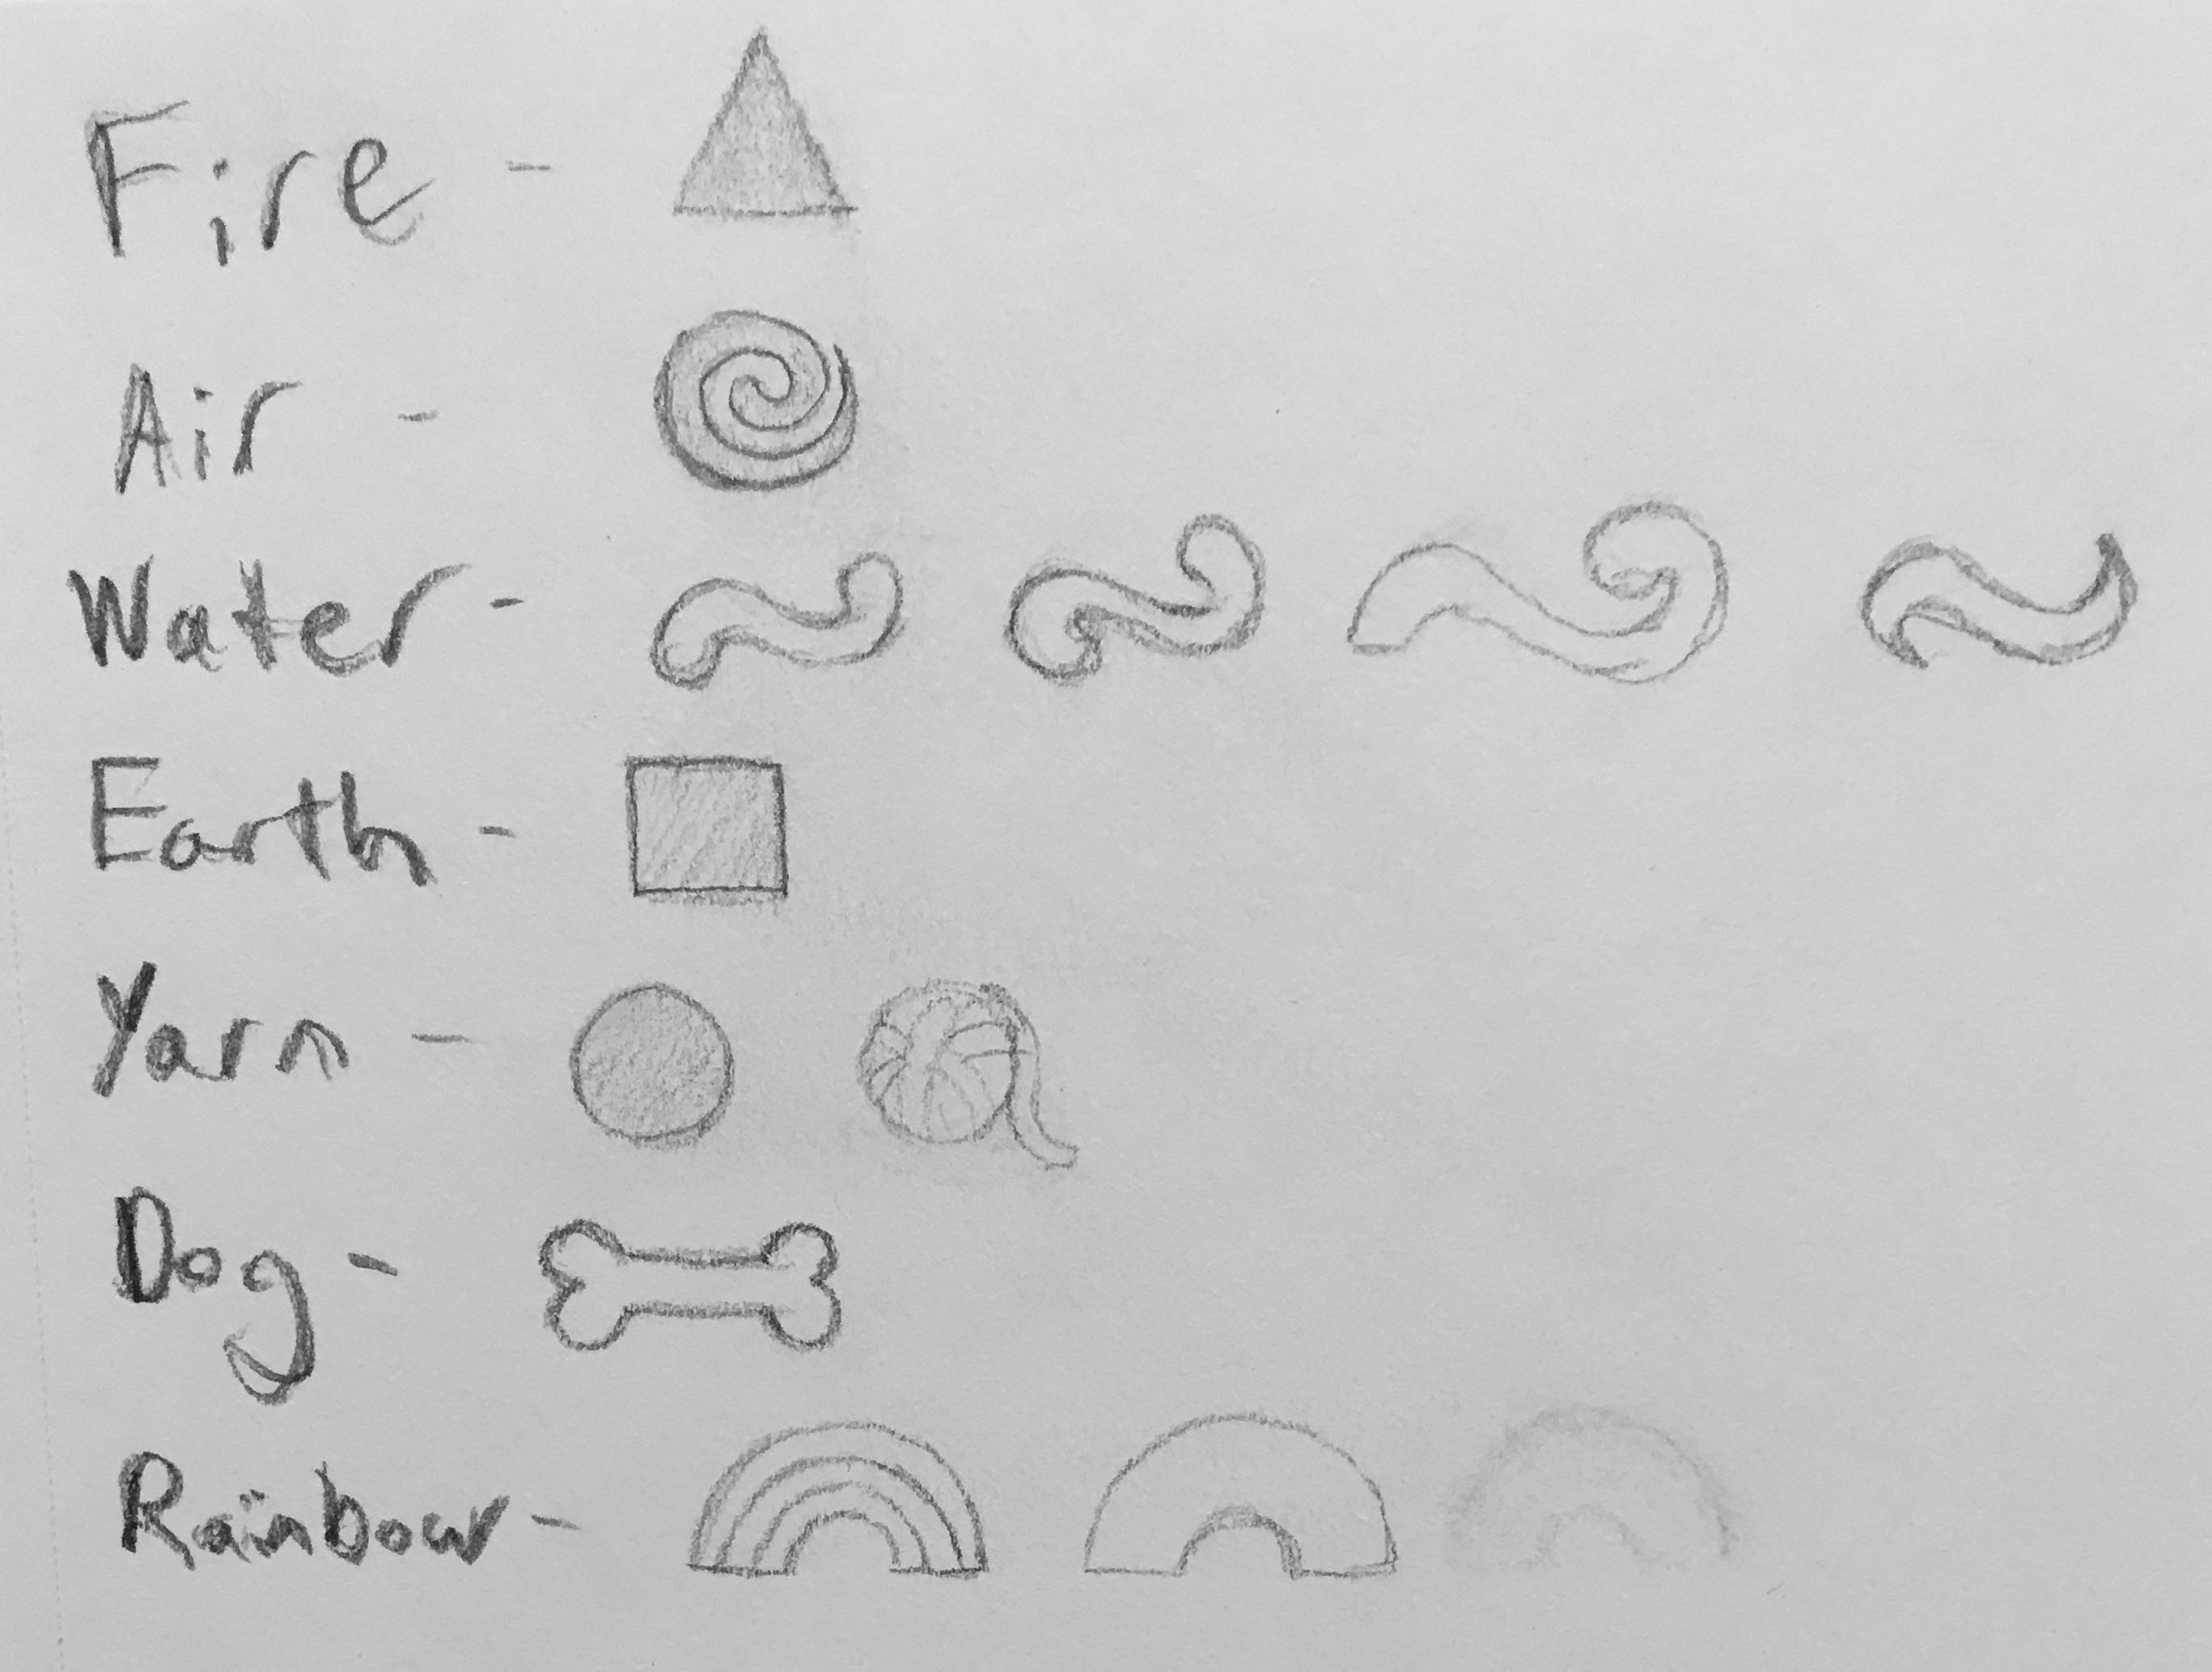 Fire -
Air -
Water -
Earth -
Yarn -
Dog -
Rainbow -